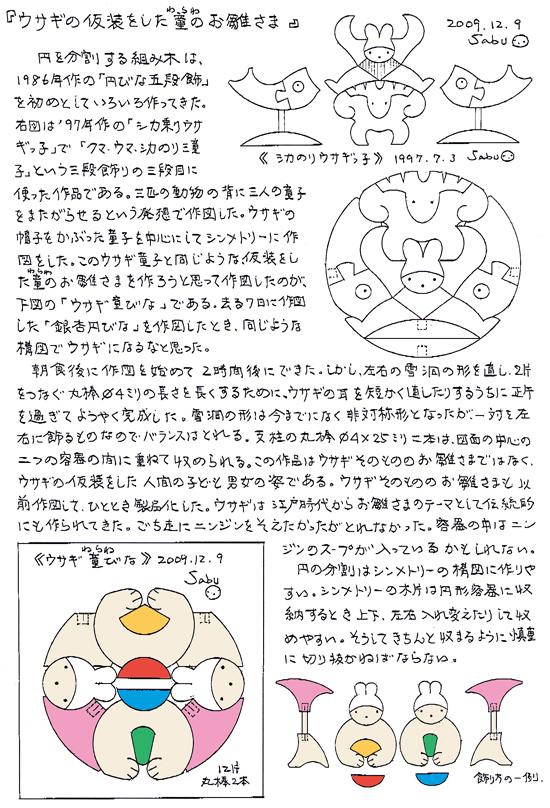 『ウサギの仮装をした童のお雛さま』
わらわ
2009.12.9
Sabu
円を分割する組み木は、
1986年作の「円びな五段飾」
を初めとしていろいろ作ってきた。
右図は'97年作の「シカ乗りウサ
ギっ子」で「クマ、ウマ、シカのり三童
子」という三段飾りの三段目に
使った作品である。三匹の動物の背に三人の童子
をまたがらせるという発想で作図した。ウサギの
帽子をかぶった童子を中心にしてシンメトリーに作
図をした。このウサギ童子と同じような仮装をし
わらわ
た童のお雛さまを作ろうと思って作図したのが、
下図の「ウサギ童びな」である。去る7日に作図
した「銀杏円びな」を作図したとき、同じような
構図でウサギになるなと思った。
《シカのりウサギっ子》 1997.7.3 Sabu
朝食後に作図を始めて2時間後にできた。しかし、左右の雪洞の形を直し、2片
をつなぐ丸棒Φ4ミリの長さを長くするために、ウサギの耳を短かく直したりするうちに正午
を過ぎてようやく完成した。雪洞の形は今までになく非対称形となったが一対を左
右に飾るものなのでバランスはとれる。支柱の丸棒Φ4×25ミリ二本は、図面の中心の
二つの容器の間に重ねて収められる。この作品はウサギそのもののお雛さまではなく、
ウサギの仮装をした人間の子ども男女の姿である。ウサギそのもののお雛さまも以
前作図して、ひととき製品化した。ウサギは江戸時代からお雛さまのテーマとして伝統的
にも作られてきた。ごち走にニンジンをそえたかったがとれなかった。容器の中はニン
ジンのスープが入っているかもしれない。
円の分割はシンメトリーの構図に作りや
すい。シンメトリーの木片は円形容器に収
納するとき上下、左右入れ変えたりして収
めやすい。そうしてきちんと収まるように慎重
に切り抜かねばならない。
わらわ
《ウサギ童びな》2009.12.9
Sabu
12片
丸棒2本
飾り方の一例.